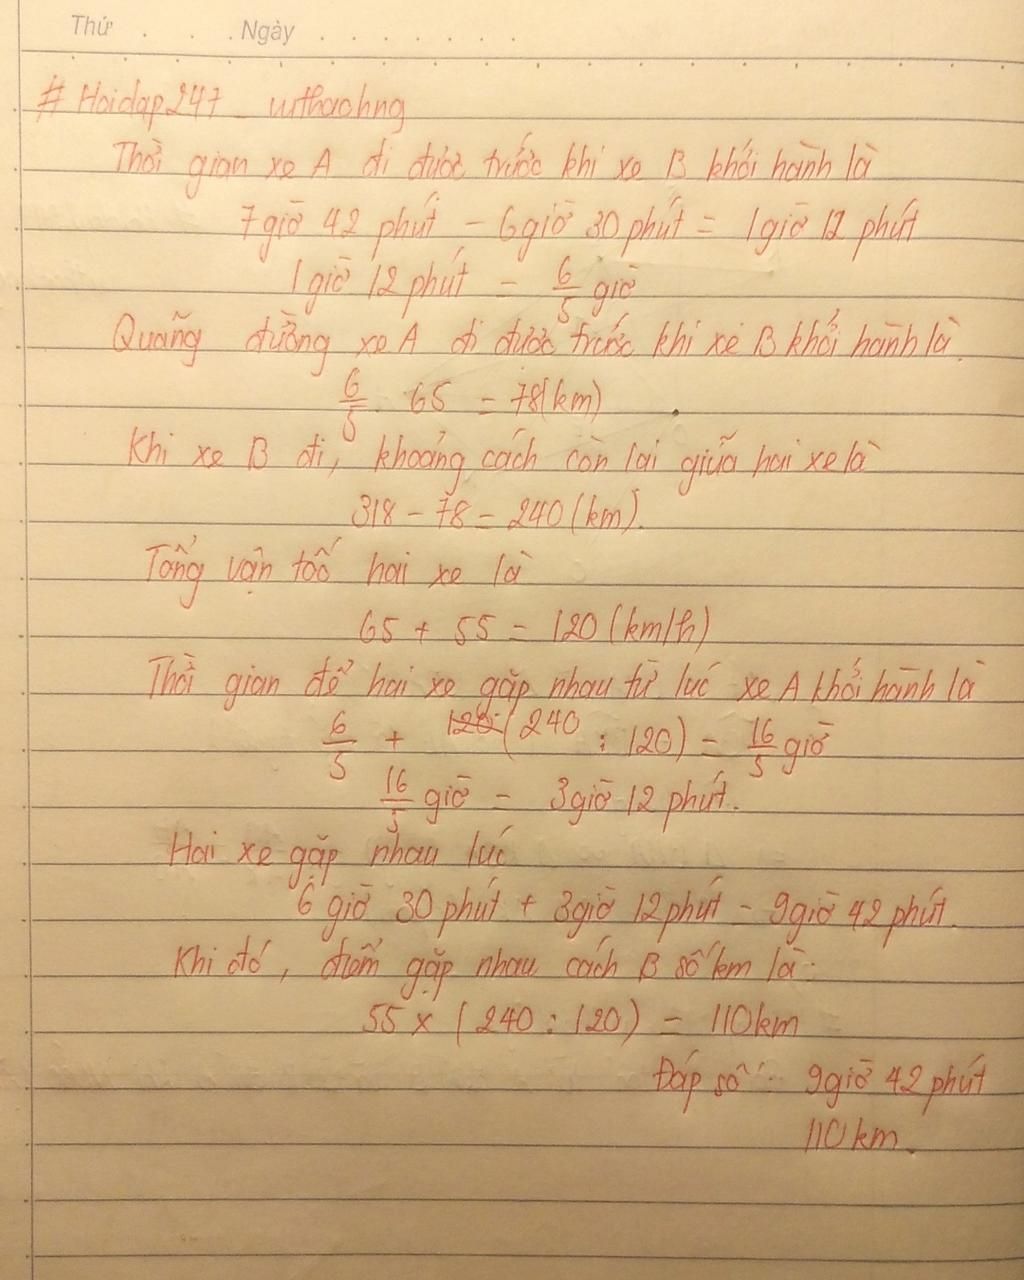 Thứ . . . . Ngày . . . . . . . .
# Hoidap247_wthaohng
Thời gian xe A đi được trước khi xe B khởi hành là
7giờ 42 phút - 6giờ 30 phút = 1giờ 12 phút
1 giờ 12 phút = 6/5 giờ
Quãng đường xe A đi được trước khi xe B khởi hành là
6/5 . 65 = 78(km)
Khi xe B đi, khoảng cách còn lại giữa hai xe là
318 - 78 = 240 (km).
Tổng vận tốc hai xe là
65 + 55 = 120 (km/h)
Thời gian để hai xe gặp nhau từ lúc xe A khởi hành là
6/5 + (240 : 120) = 16/5 giờ
16/5 giờ = 3giờ 12 phút.
Hai xe gặp nhau lúc
6 giờ 30 phút + 3giờ 12 phút = 9giờ 42 phút.
Khi đó, điểm gặp nhau cách B số km là:
55 x (240 : 120) = 110km
Đáp số: 9giờ 42 phút
110 km.